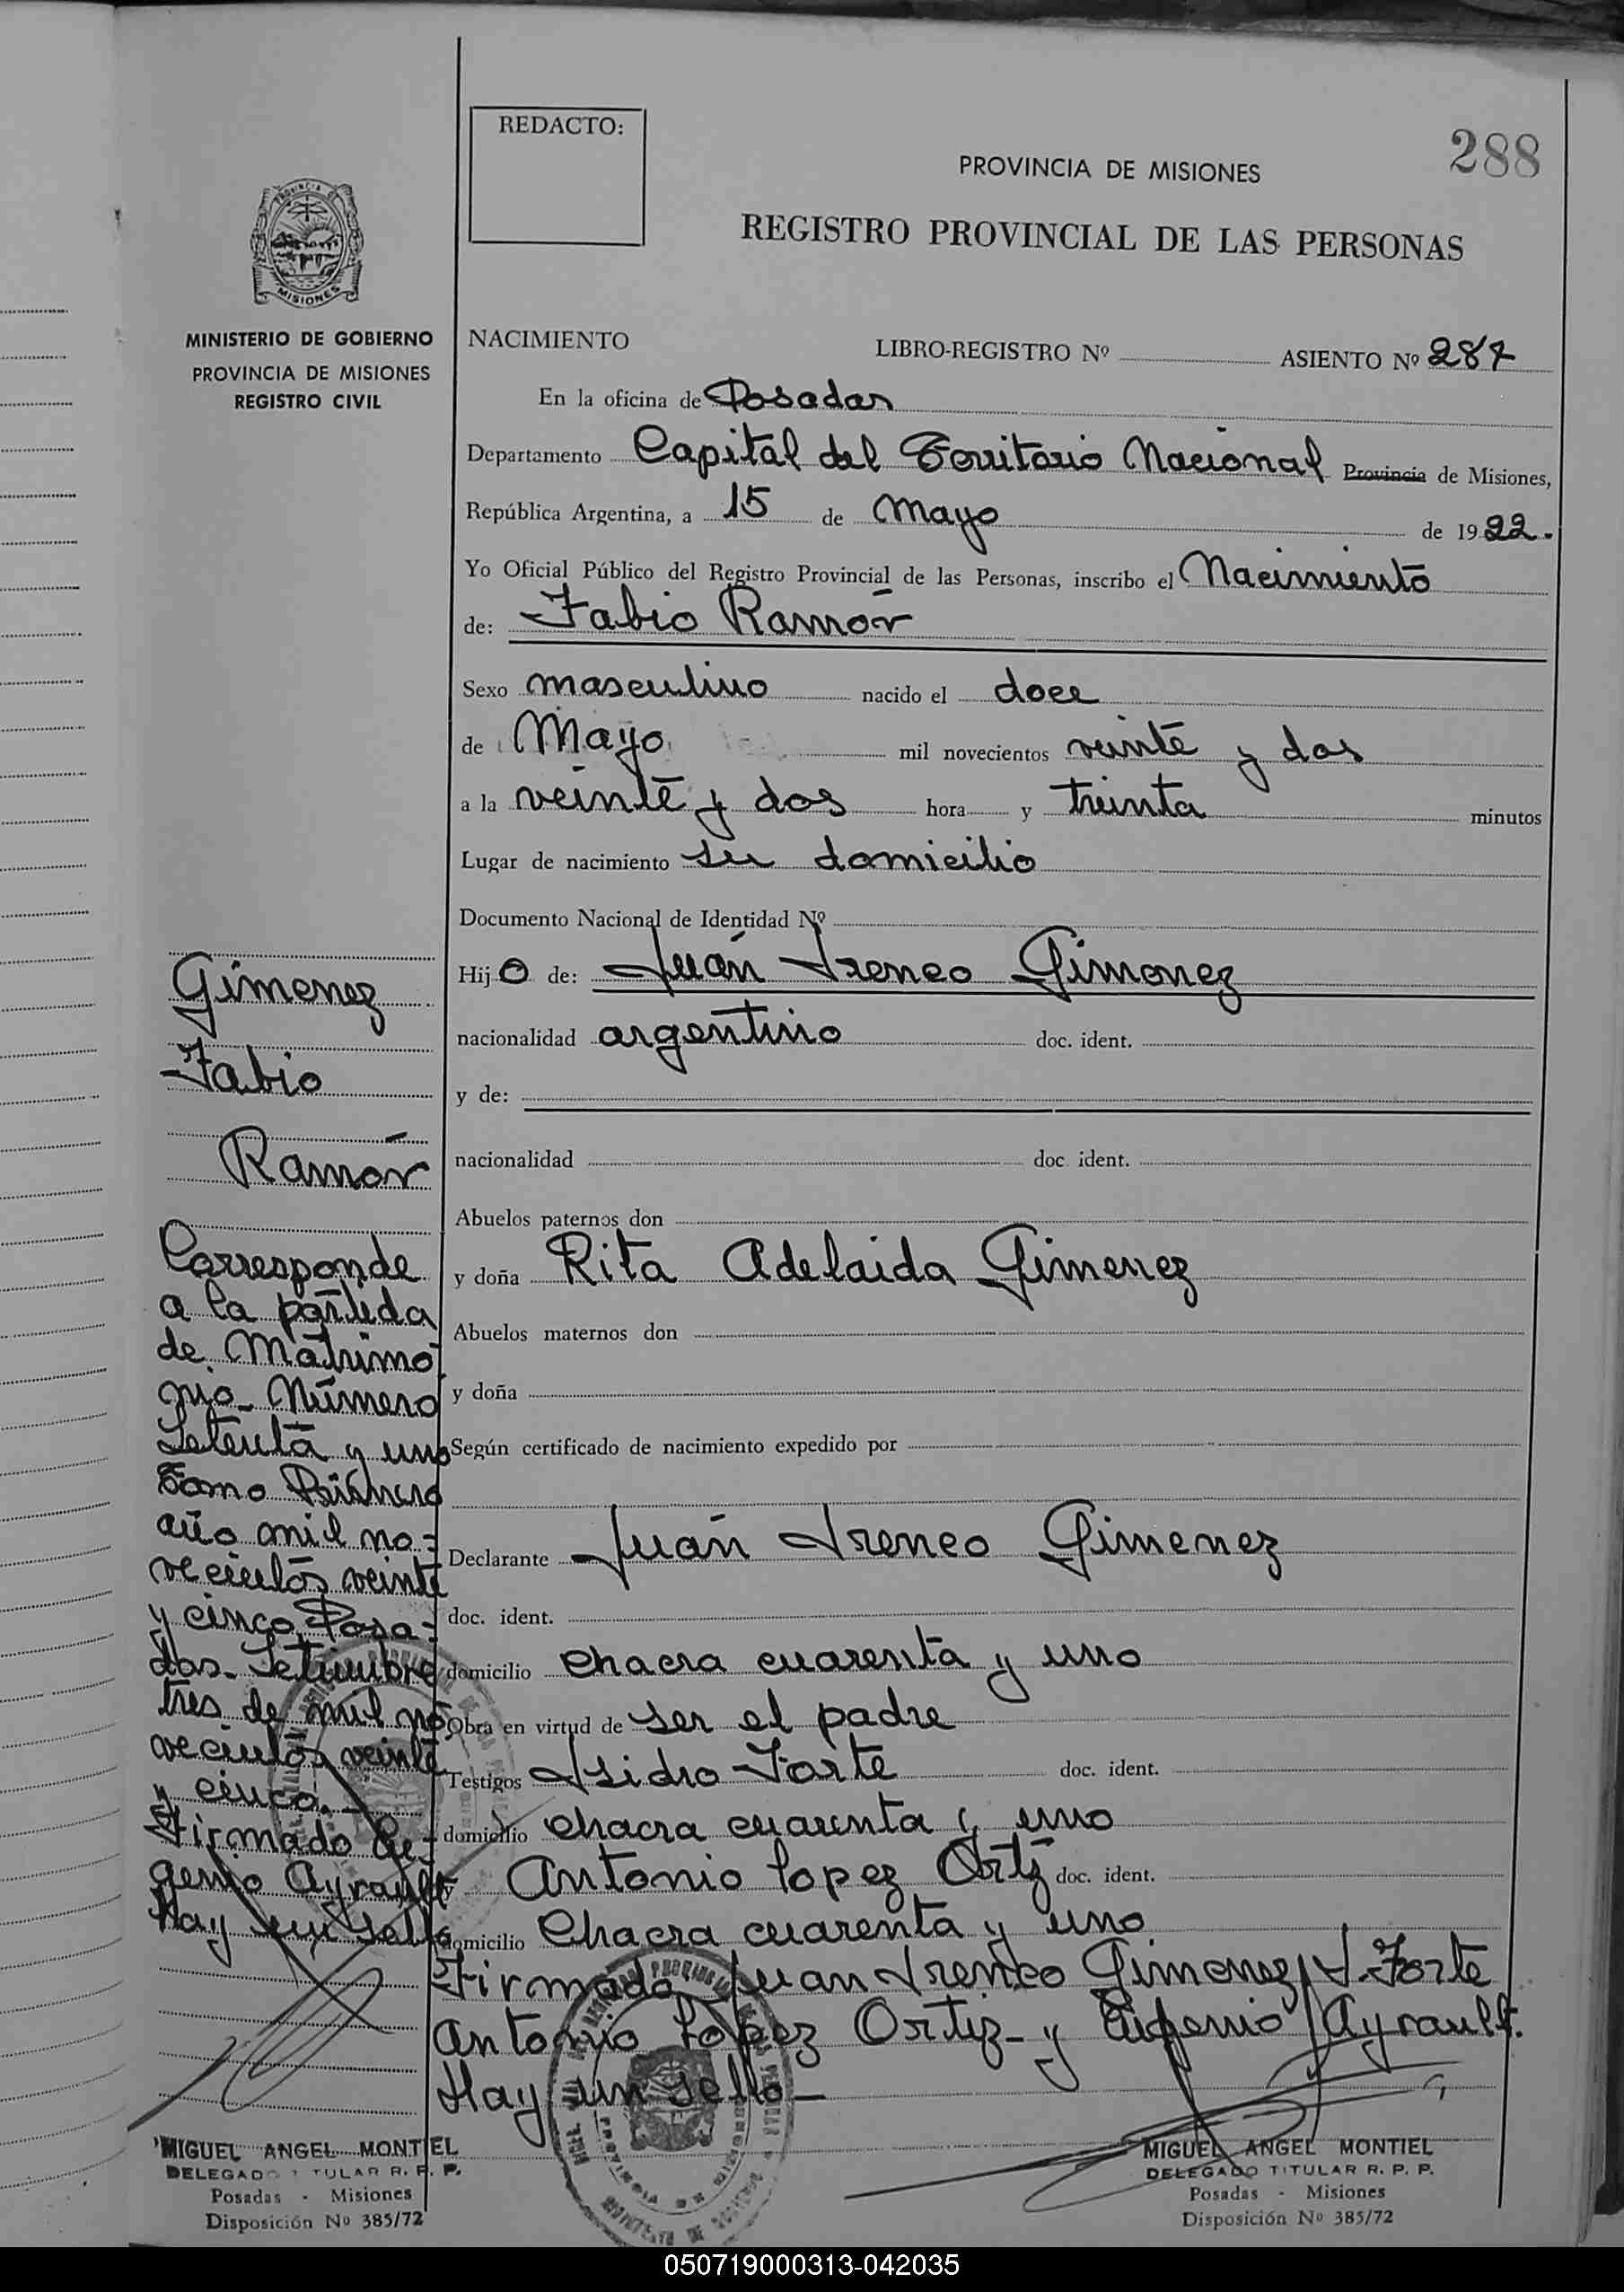 REDACTO:
288
PROVINCIA DE MISIONES
REGISTRO PROVINCIAL DE LAS PERSONAS
MISIONES
MINISTERIO DE GOBIERNO
PROVINCIA DE MISIONES
REGISTRO CIVIL
NACIMIENTO LIBRO-REGISTRO Nº ASIENTO Nº 287
En la oficina de Posadas
Departamento Capital del Territorio Nacional Provincia de Misiones,
República Argentina, a 15 de Mayo de 1922.
Yo Oficial Público del Registro Provincial de las Personas, inscribo el Nacimiento
de: Fabio Ramón
Sexo masculino nacido el doce
de Mayo mil novecientos veinte y dos
a la veinte y dos hora y treinta minutos
Lugar de nacimiento su domicilio
Documento Nacional de Identidad Nº
Hijo de: Juán Ireneo Gimenez
nacionalidad argentino doc. ident.
y de:
nacionalidad doc. ident.
Abuelos paternos don
y doña Rita Adelaida Gimenez
Abuelos maternos don
y doña
Según certificado de nacimiento expedido por
Declarante Juán Ireneo Gimenez
doc. ident.
domicilio chacra cuarenta y uno
Obra en virtud de ser el padre
Testigos Isidro Forte doc. ident.
domicilio chacra cuarenta y uno
y Antonio Lopez Ortiz doc. ident.
domicilio Chacra cuarenta y uno
Firmado Juan Ireneo Gimenez, I. Forte
Antonio Lopez Ortiz y Eugenio Ayrault.
Hay un sello
Gimenez
Fabio
Ramón
Corresponde
a la partida
de Matrimo
nio Número
Setenta y uno
Tomo Primero
año mil no-
vecientos veinte
y cinco. Posa-
das. Setiembre
tres de mil no
vecientos veinte
y cinco.
Firmado
Ayrault
Hay un sello
MIGUEL ANGEL MONTIEL
DELEGADO TITULAR R. P. P.
Posadas - Misiones
Disposición Nº 385/72
MIGUEL ANGEL MONTIEL
DELEGADO TITULAR R. P. P.
Posadas - Misiones
Disposición Nº 385/72
050719000313-042035